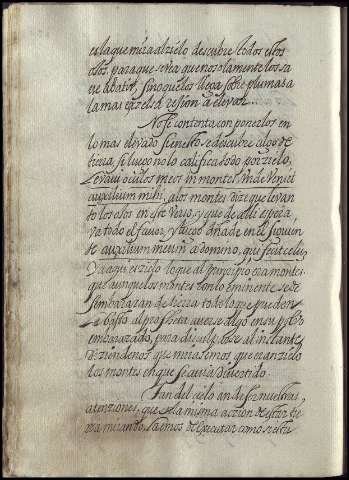 es la que mira al zielo descubre todos estos
ojos, para que se vea que no solamente los sa
ve abatir, sino que los lleva sobre plumas a
la mas excelsa rejion a elevar.
No se contenta con ponerlos en
lo mas elevado si en esto se descubre algo de
tierra, si luego no lo califica todo por zielo,
Levavi oculos meos in montes Unde Veniet
auxilium mihi, a los montes dize que levan
to los ojos en este Verso, y que de alli espera
va todo el favor, y luego añade en el siguien
te auxilium meum a domino, qui fecit celũ
Ya aqui es zielo lo que al principio era montes
que aunque los montes con lo eminente se de
sembarazan de tierra todo lo que pueden
le basto al propheta averse algo en su
embarazado, para disculparse al instante
diziendonos que mirasemos que eran zielo
los montes en que se avia divertido.
Tan del cielo an de ser nuestras
atenziones, que la misma aczion de estar
mirando, la emos de executar como